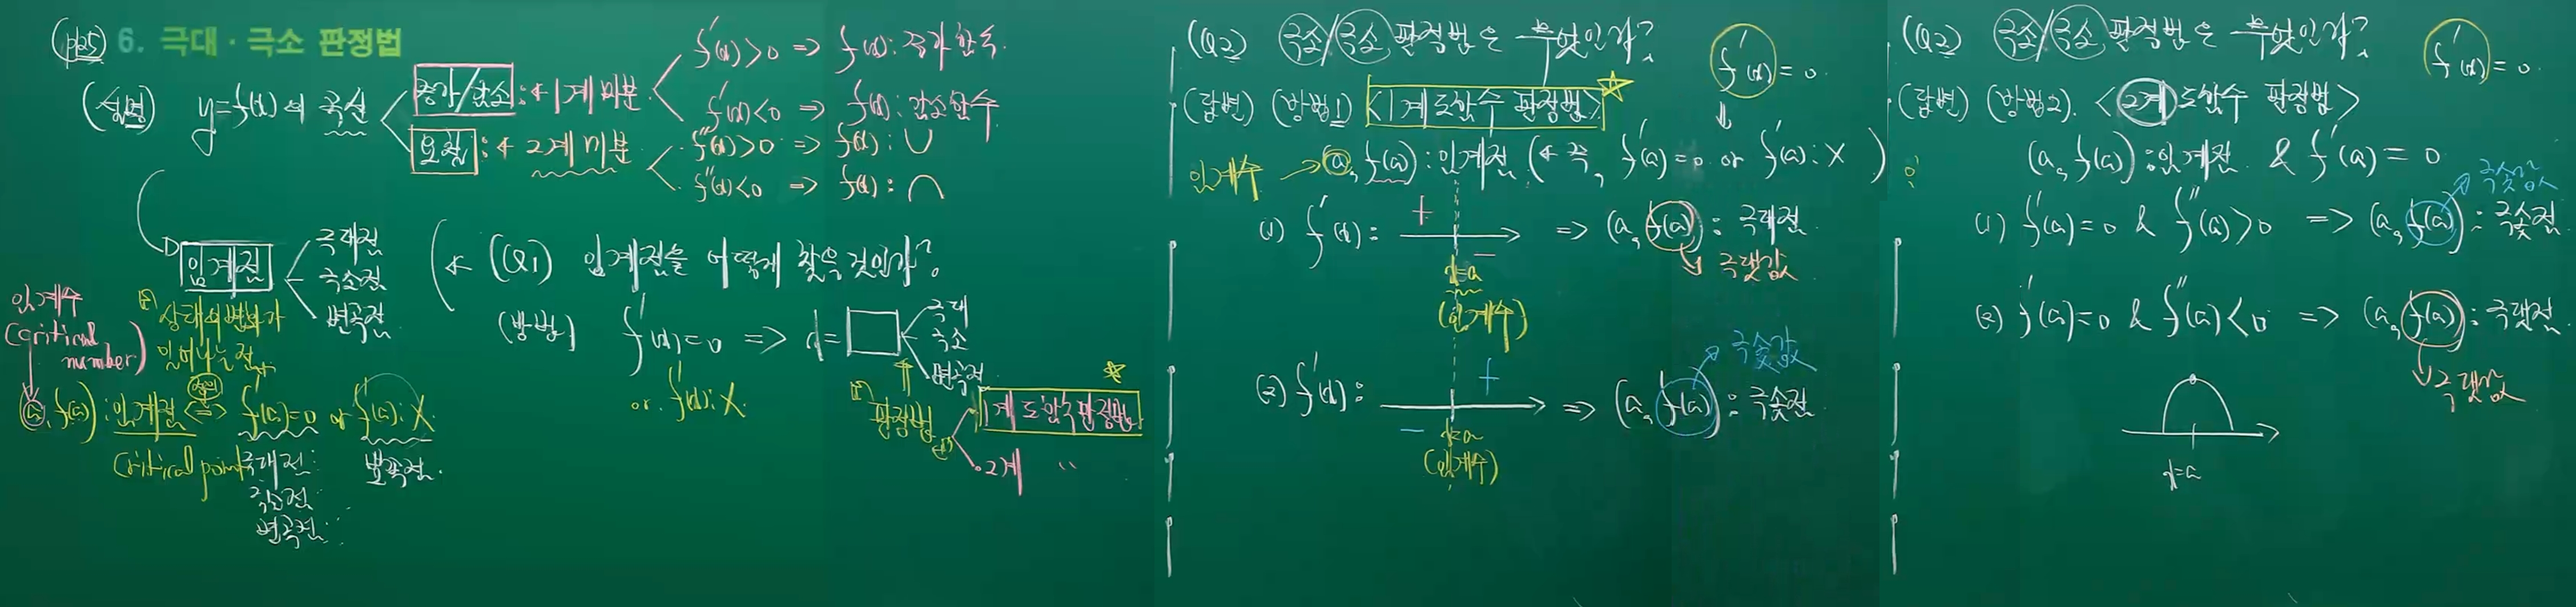 (p25) 6. 극대·극소 판정법
(설명) y=f(x)의 곡선
증가/감소 : ← 1계 미분
f'(x)>0 => f(x): 증가함수.
f'(x)<0 => f(x): 감소함수
오목 : ← 2계 미분
f''(x)>0 => f(x): ∪
f''(x)<0 => f(x): ∩
임계점
극대점
극소점
변곡점
상태의 변화가
일어나는 점
임계수
(critical number)
(a, f(a)) : 임계점 <=> f'(a)=0 or f'(a): X
critical point
극대점
극소점
변곡점
변곡점.
← (Q1) 임계점을 어떻게 찾을 것인가?
(방법) f'(x)=0 => x=□
or f'(x): X
극대
극소
변곡점
판정법
1계 도함수 판정법
2계 〃
(Q2) 극소/극소 판정법은 무엇인가?
f'(x)=0.
(답변) (방법1) <1계 도함수 판정법>
임계수 → (a, f(a)) : 임계점 (← 즉, f'(a)=0 or f'(a): X)
(1) f'(x): + − => (a, f(a)) : 극대점
극댓값
x=a
(임계수)
(2) f'(x): − + => (a, f(a)) : 극솟점
극솟값
x=a
(임계수)
(Q2) 극소/극소 판정법은 무엇인가?
f'(x)=0.
(답변) (방법2). <2계 도함수 판정법>
(a, f(a)) : 임계점 & f'(a)=0
극솟값
(1) f'(a)=0 & f''(a)>0 => (a, f(a)) : 극솟점
(2) f'(a)=0 & f''(a)<0 => (a, f(a)) : 극댓점
극댓값
x=a